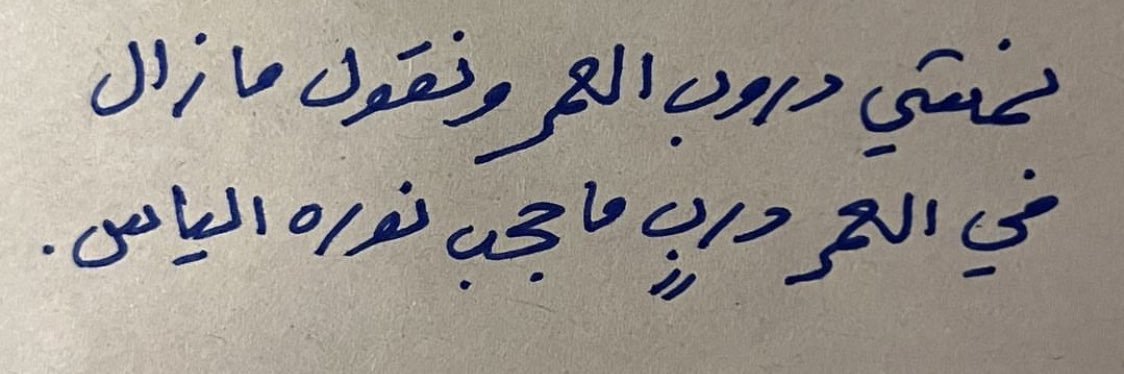 نمشي دروب العمر ونقول ما زال
في العمر دربٍ ما حجب نوره الياس.